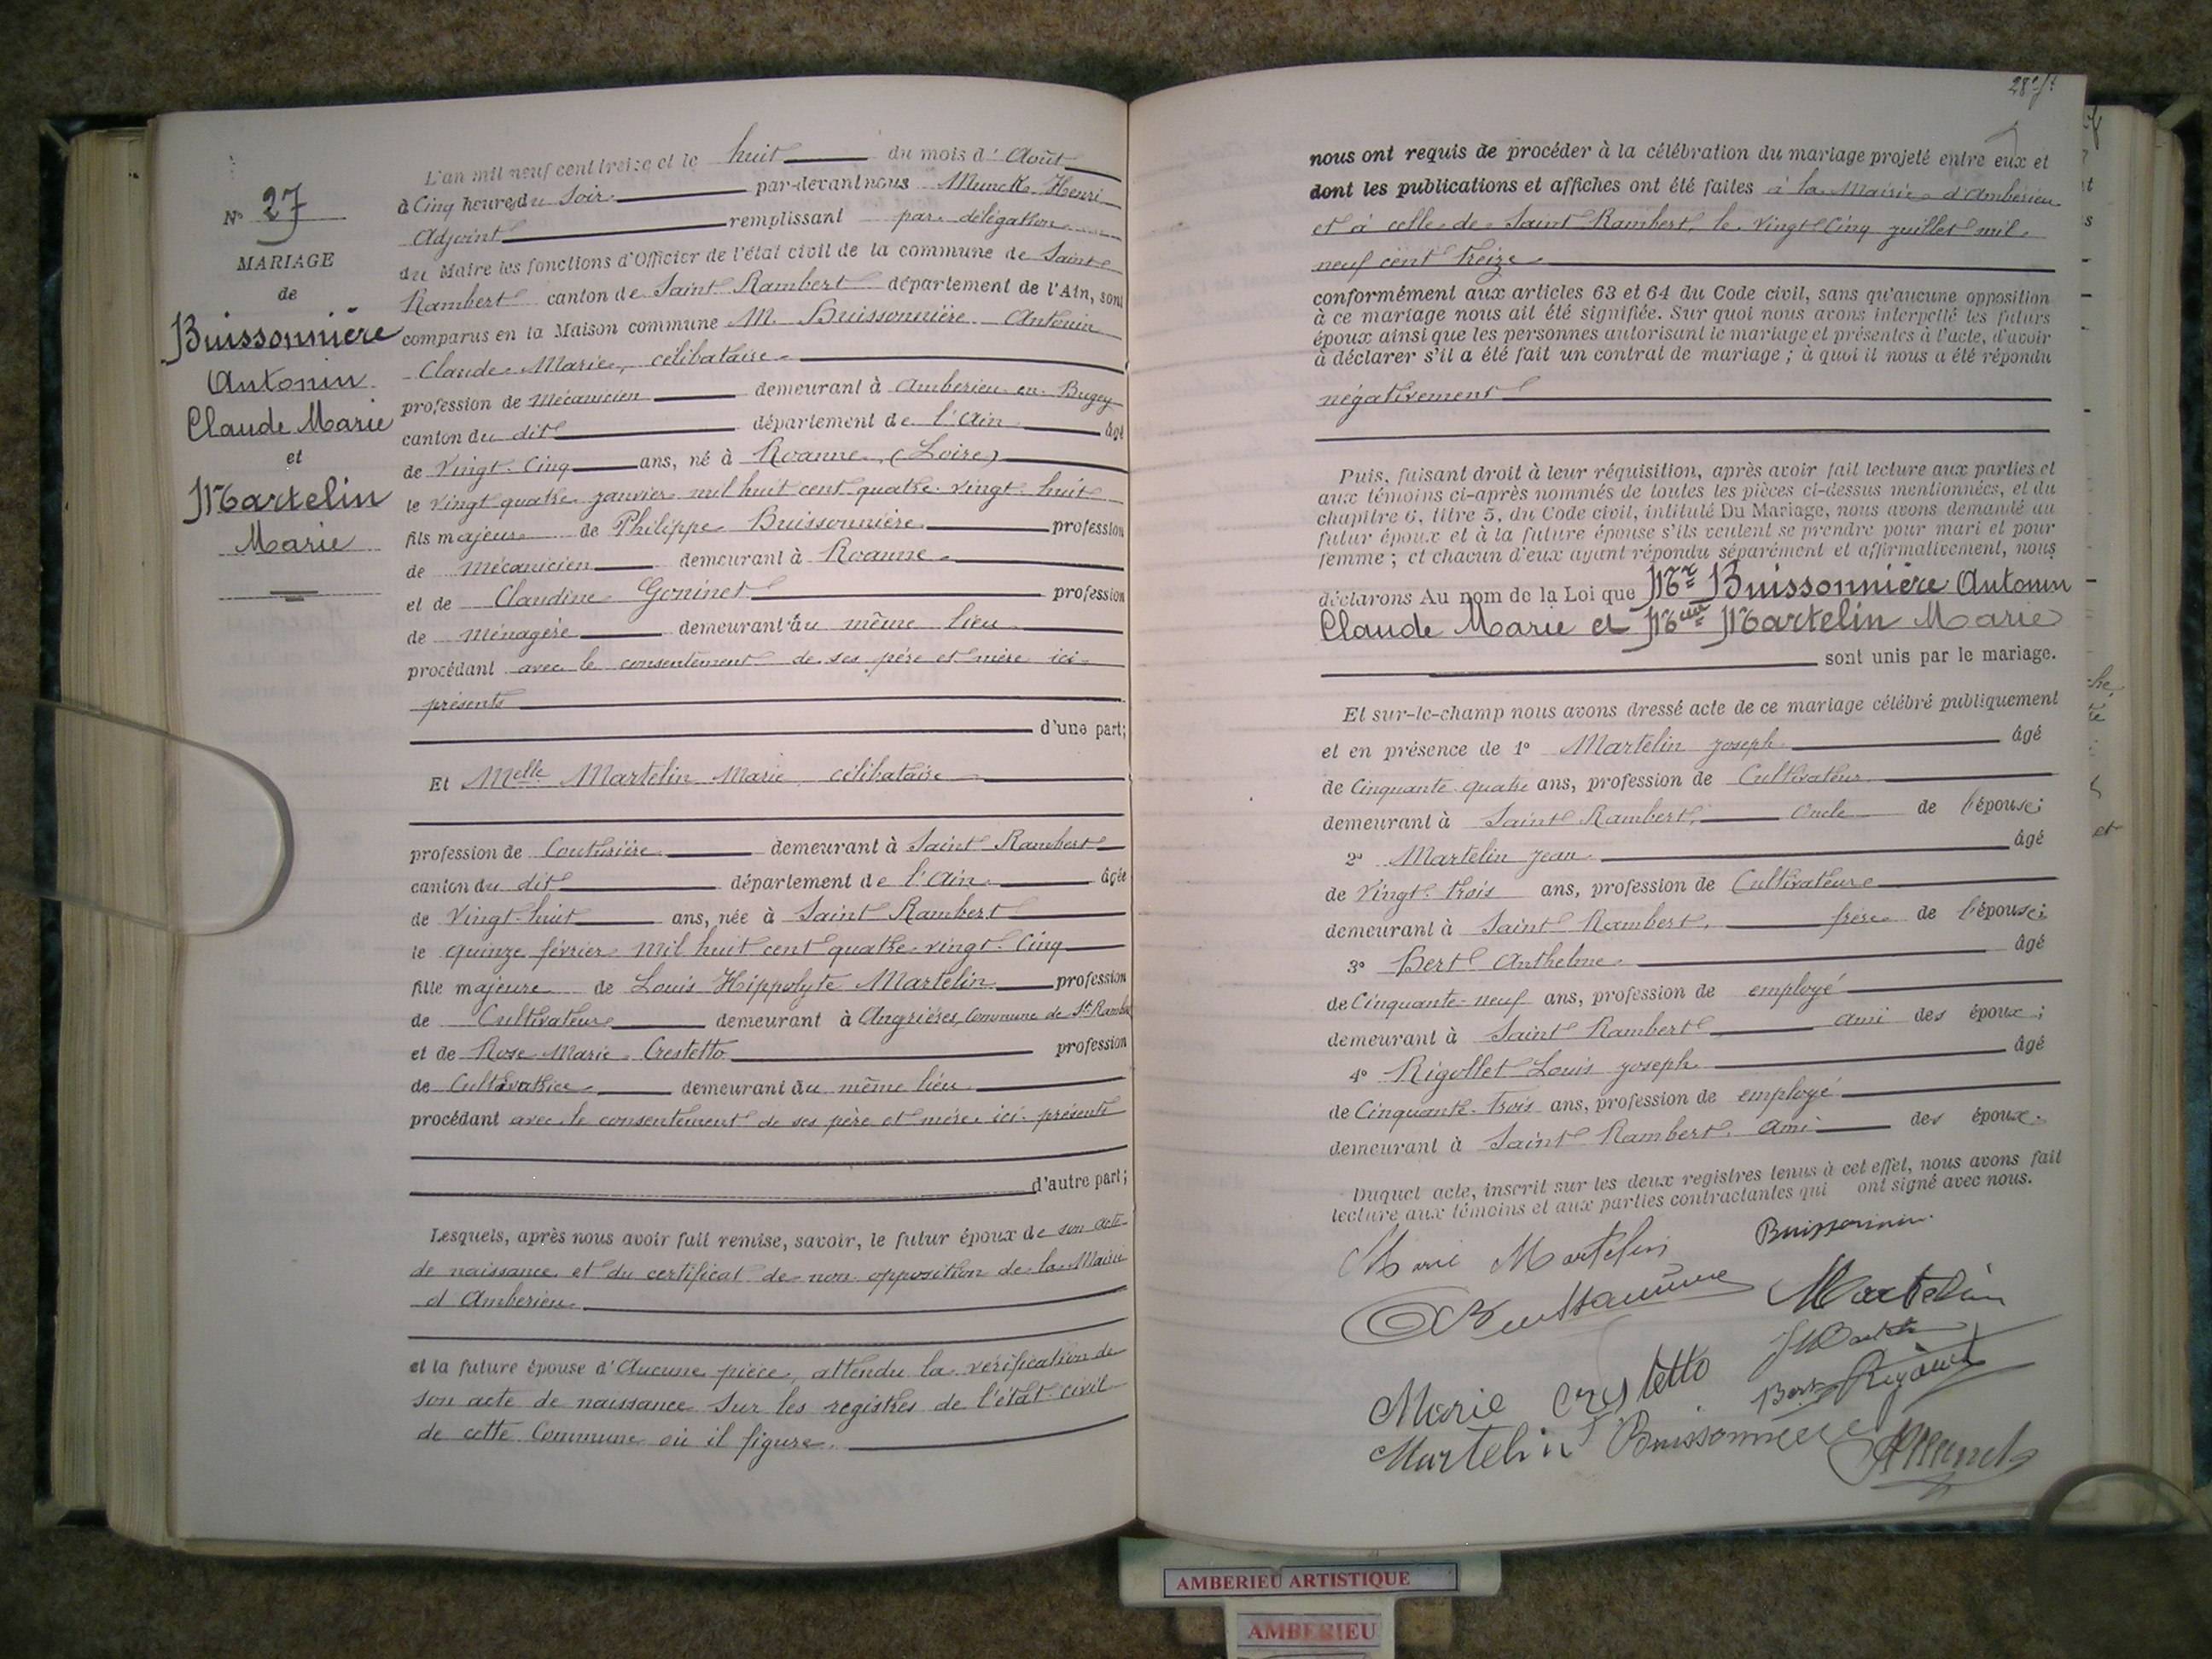 N° 27
MARIAGE
de
Buissonnière
Antonin
Claude Marie
et
Martelin
Marie
L'an mil neuf cent treize et le huit du mois d' Août
à Cinq heures du Soir par-devant nous Munck Henri
Adjoint remplissant par délégation
du Maire les fonctions d'Officier de l'état civil de la commune de Saint
Rambert canton de Saint Rambert département de l'Ain, sont
comparus en la Maison commune M. Buissonnière Antonin
Claude Marie, célibataire
profession de mécanicien demeurant à Amberieu en Bugey
canton du dit département de l'Ain âgé
de Vingt-Cinq ans, né à Roanne (Loire)
le vingt quatre janvier mil huit cent quatre-vingt-huit
fils majeur de Philippe Buissonnière profession
de mécanicien demeurant à Roanne
et de Claudine Goninet profession
de Ménagère demeurant au même lieu
procédant avec le consentement de ses père et mère ici-
présents
d'une part;
Et Melle Martelin Marie, célibataire
profession de Couturière demeurant à Saint Rambert
canton du dit département de l'Ain âgée
de Vingt-huit ans, née à Saint Rambert
le quinze février mil huit cent quatre-vingt-Cinq
fille majeure de Louis Hippolyte Martelin profession
de Cultivateur demeurant à Angrières, Commune de St Rambert
et de Rose Marie Crestetto profession
de Cultivatrice demeurant au même lieu
procédant avec le consentement de ses père et mère ici-présents
d'autre part;
Lesquels, après nous avoir fait remise, savoir, le futur époux de son acte
de naissance et du certificat de non opposition de la Mairie
d'Amberieu
et la future épouse d'Aucune pièce, attendu la vérification de
son acte de naissance sur les registres de l'état-civil
de cette Commune où il figure.
28
nous ont requis de procéder à la célébration du mariage projeté entre eux et
dont les publications et affiches ont été faites à la Mairie d'Amberieu
et à celle de Saint Rambert, le vingt Cinq juillet mil
neuf cent treize
conformément aux articles 63 et 64 du Code civil, sans qu'aucune opposition
à ce mariage nous ait été signifiée. Sur quoi nous avons interpellé les futurs
époux ainsi que les personnes autorisant le mariage et présentes à l'acte, d'avoir
à déclarer s'il a été fait un contrat de mariage ; à quoi il nous a été répondu
négativement
Puis, faisant droit à leur réquisition, après avoir fait lecture aux parties et
aux témoins ci-après nommés de toutes les pièces ci-dessus mentionnées, et du
chapitre 6, titre 5, du Code civil, intitulé Du Mariage, nous avons demandé au
futur époux et à la future épouse s'ils veulent se prendre pour mari et pour
femme ; et chacun d'eux ayant répondu séparément et affirmativement, nous
déclarons Au nom de la Loi que Mr Buissonnière Antonin
Claude Marie et Melle Martelin Marie
sont unis par le mariage.
Et sur-le-champ nous avons dressé acte de ce mariage célébré publiquement
et en présence de 1° Martelin Joseph âgé
de Cinquante-quatre ans, profession de Cultivateur
demeurant à Saint Rambert, Oncle de l'épouse;
2° Martelin Jean âgé
de Vingt-trois ans, profession de Cultivateur
demeurant à Saint Rambert, frère de l'épouse;
3° Bert Anthelme âgé
de Cinquante-neuf ans, profession de employé
demeurant à Saint Rambert ami des époux;
4° Rigollet Louis Joseph âgé
de Cinquante-trois ans, profession de employé
demeurant à Saint Rambert Ami des époux.
Duquel acte, inscrit sur les deux registres tenus à cet effet, nous avons fait
lecture aux témoins et aux parties contractantes qui ont signé avec nous.
Marie Martelin
Buissonnière
Martelin
Marie Crestetto
Bert
Martelin
Buissonnière
Munck
AMBERIEU ARTISTIQUE
AMBERIEU